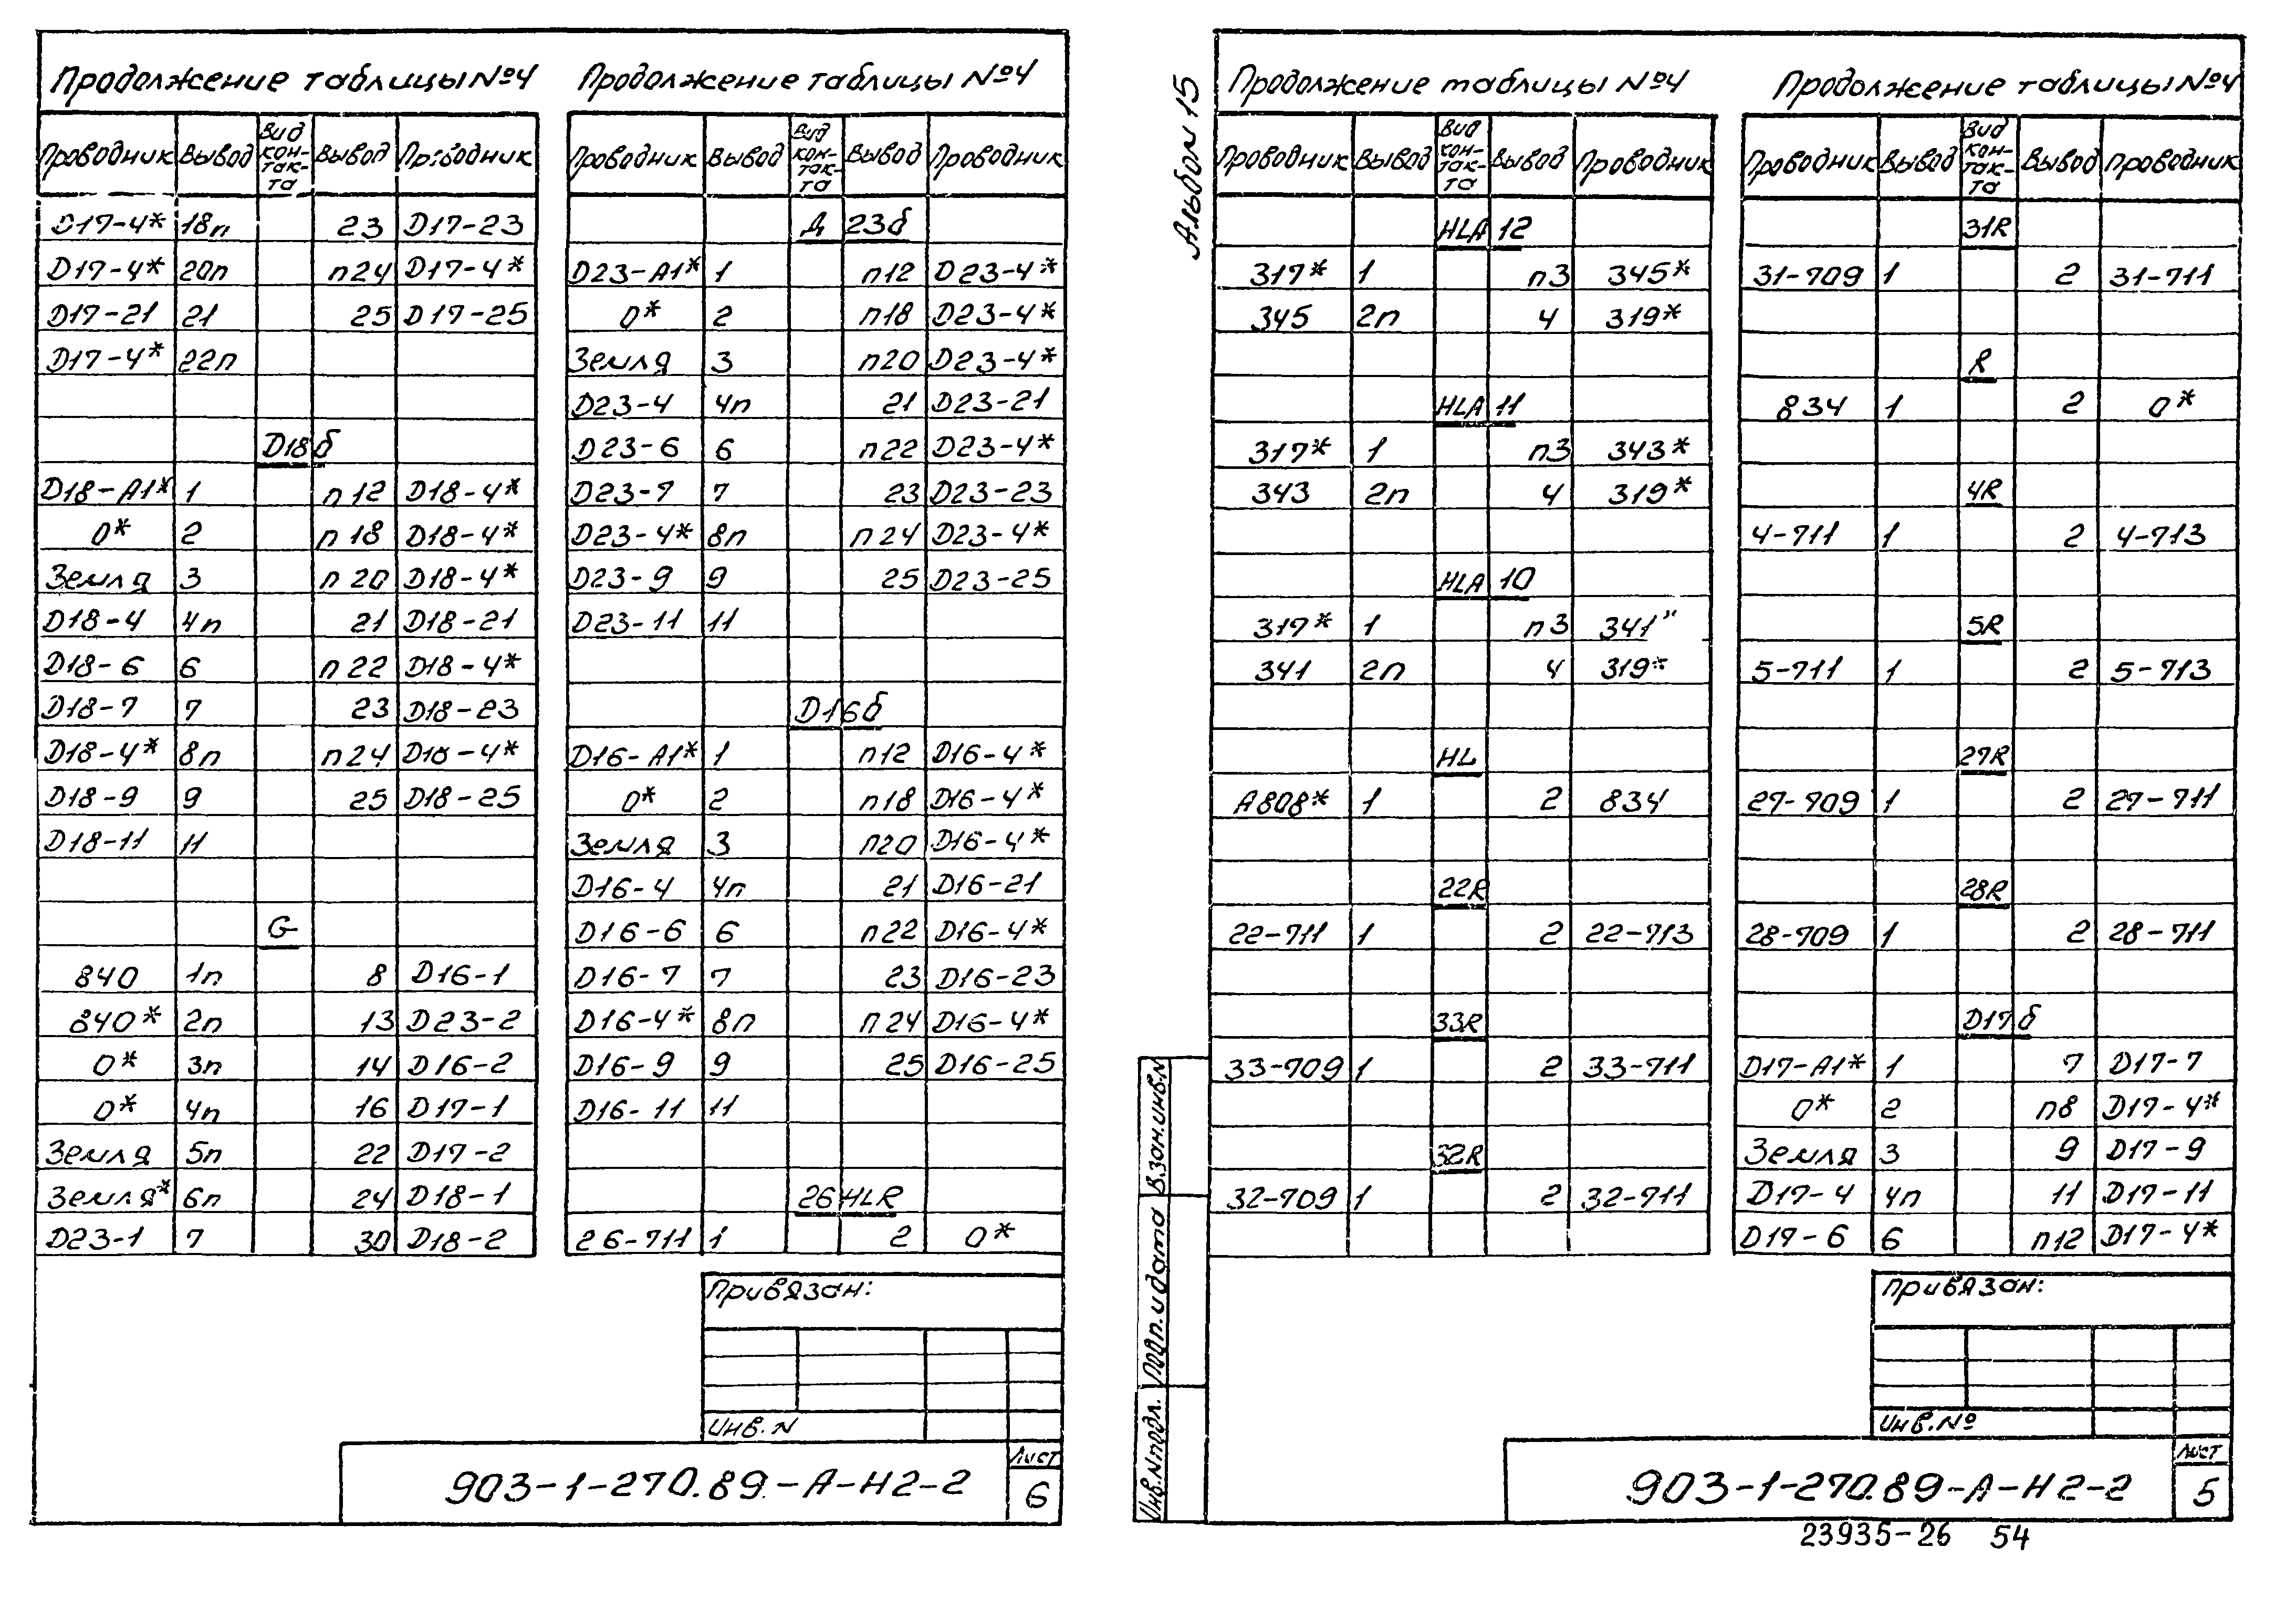 Продолжение таблицы №4
Проводник Вывод Вид кон-так-та Вывод Проводник
D17-4* 18п 23 D17-23
D17-4* 20п п24 D17-4*
D17-21 21 25 D17-25
D17-4* 22п
D18б
D18-А1* 1 п12 D18-4*
0* 2 п18 D18-4*
Земля 3 п20 D18-4*
D18-4 4п 21 D18-21
D18-6 6 п22 D18-4*
D18-7 7 23 D18-23
D18-4* 8п п24 D18-4*
D18-9 9 25 D18-25
D18-11 11
G
840 1п 8 D16-1
840* 2п 13 D23-2
0* 3п 14 D16-2
0* 4п 16 D17-1
Земля 5п 22 D17-2
Земля* 6п 24 D18-1
D23-1 7 30 D18-2
Продолжение таблицы №4
Проводник Вывод Вид кон-так-та Вывод Проводник
Д 23б
D23-А1* 1 п12 D23-4*
0* 2 п18 D23-4*
Земля 3 п20 D23-4*
D23-4 4п 21 D23-21
D23-6 6 п22 D23-4*
D23-7 7 23 D23-23
D23-4* 8п п24 D23-4*
D23-9 9 25 D23-25
D23-11 11
D16б
D16-А1* 1 п12 D16-4*
0* 2 п18 D16-4*
Земля 3 п20 D16-4*
D16-4 4п 21 D16-21
D16-6 6 п22 D16-4*
D16-7 7 23 D16-23
D16-4* 8п п24 D16-4*
D16-9 9 25 D16-25
D16-11 11
26HLR
26-711 1 2 0*
Привязан:
Инв.N
903-1-270.89-А-Н2-2
Лист
6
Альбом 15
Продолжение таблицы №4
Проводник Вывод Вид кон-так-та Вывод Проводник
HLA 12
317* 1 п3 345*
345 2п 4 319*
HLA 11
317* 1 п3 343*
343 2п 4 319*
HLA 10
317* 1 п3 341"
341 2п 4 319*
HL
А808* 1 2 834
22R
22-711 1 2 22-713
33R
33-709 1 2 33-711
32R
32-709 1 2 32-711
Продолжение таблицы №4
Проводник Вывод Вид кон-так-та Вывод Проводник
31R
31-709 1 2 31-711
R
834 1 2 0*
4R
4-711 1 2 4-713
5R
5-711 1 2 5-713
27R
27-709 1 2 27-711
28R
28-709 1 2 28-711
D17б
D17-А1* 1 7 D17-7
0* 2 п8 D17-4*
Земля 3 9 D17-9
D17-4 4п 11 D17-11
D17-6 6 п12 D17-4*
Взам.инв.N
Подп. и дата
Инв.N подл.
Привязан:
Инв.№
903-1-270.89-А-Н2-2
Лист
5
23935-26 54